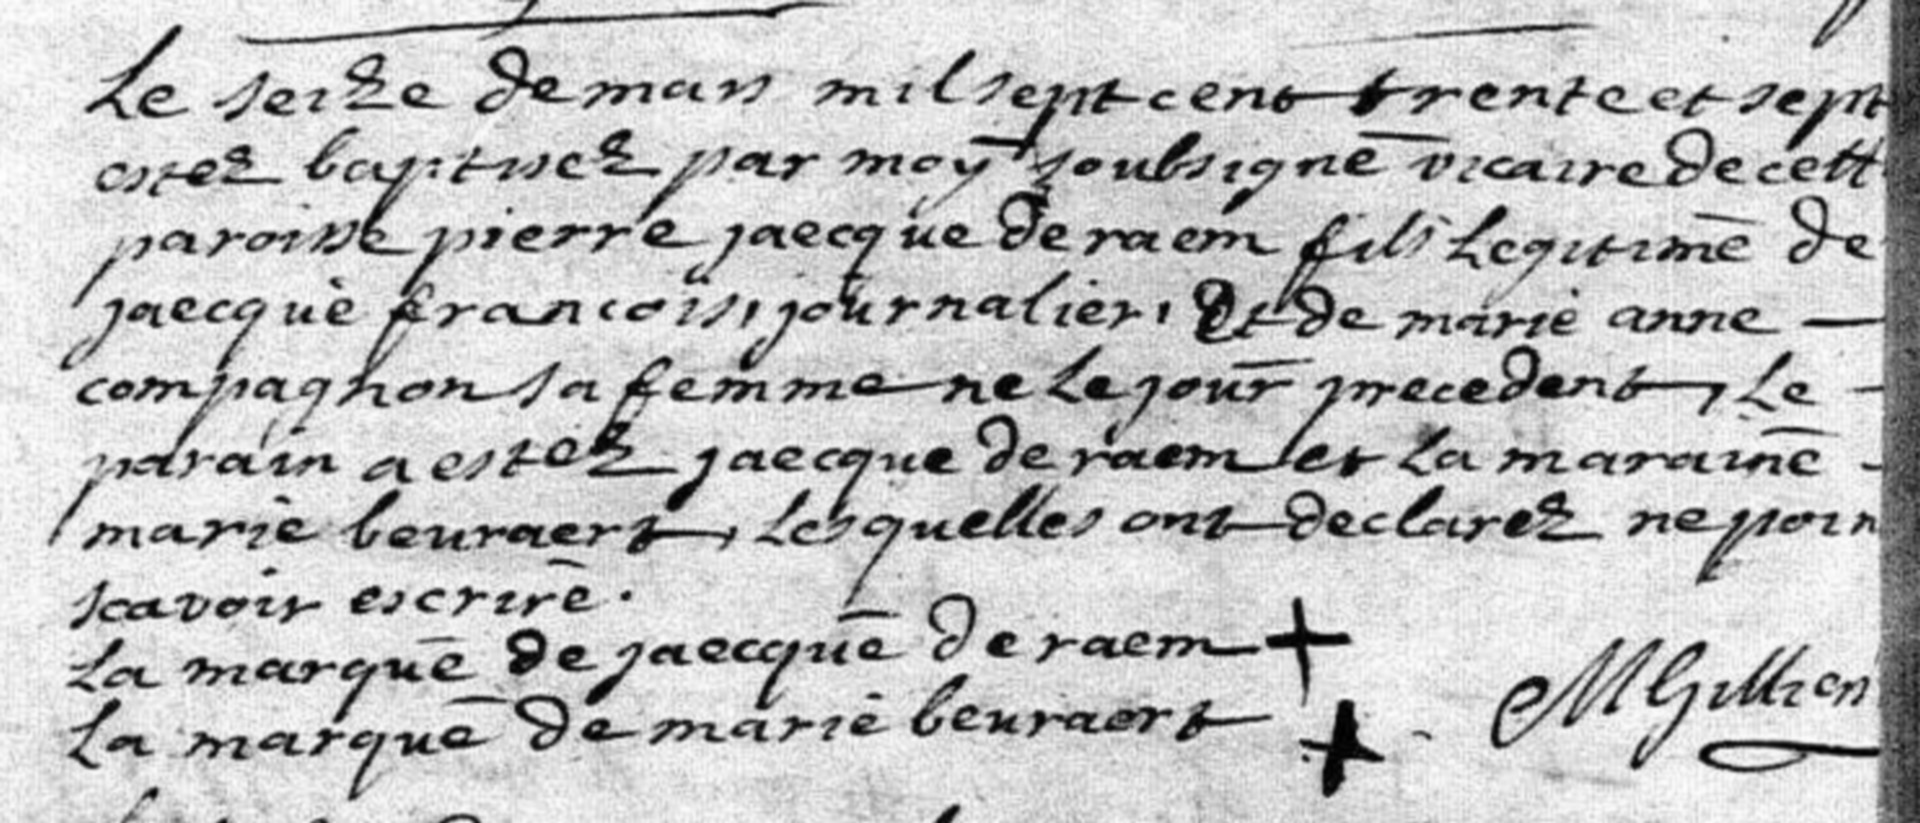 Le seize de mars mil sept cent trente et sept
estez baptisez par moÿ soubsigné vicaire de cett
paroisse pierre jaecque de raem fils Legitime de
jaecque francois, journalier, Et de marie anne —
compagnon sa femme ne Le jour precedent, Le -
parain a estez jaecque de raem et La maraine -
marie beuraert, Lesquelles ont declarez ne poin
scavoir escrire.
La marque de jaecque de raem +
La marque de marie beuraert +